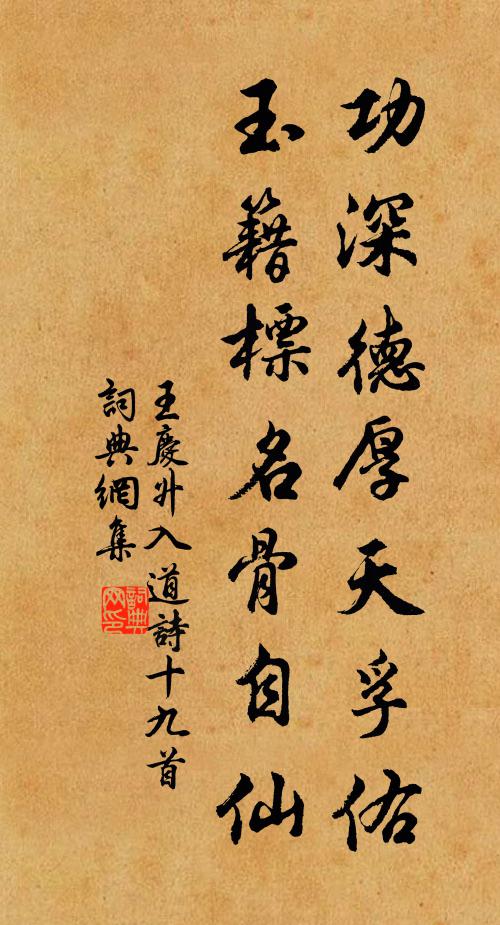 功深德厚天孚佑
玉籍標名骨自仙
王慶升入道詩十九首
詞典網集
詞典網印